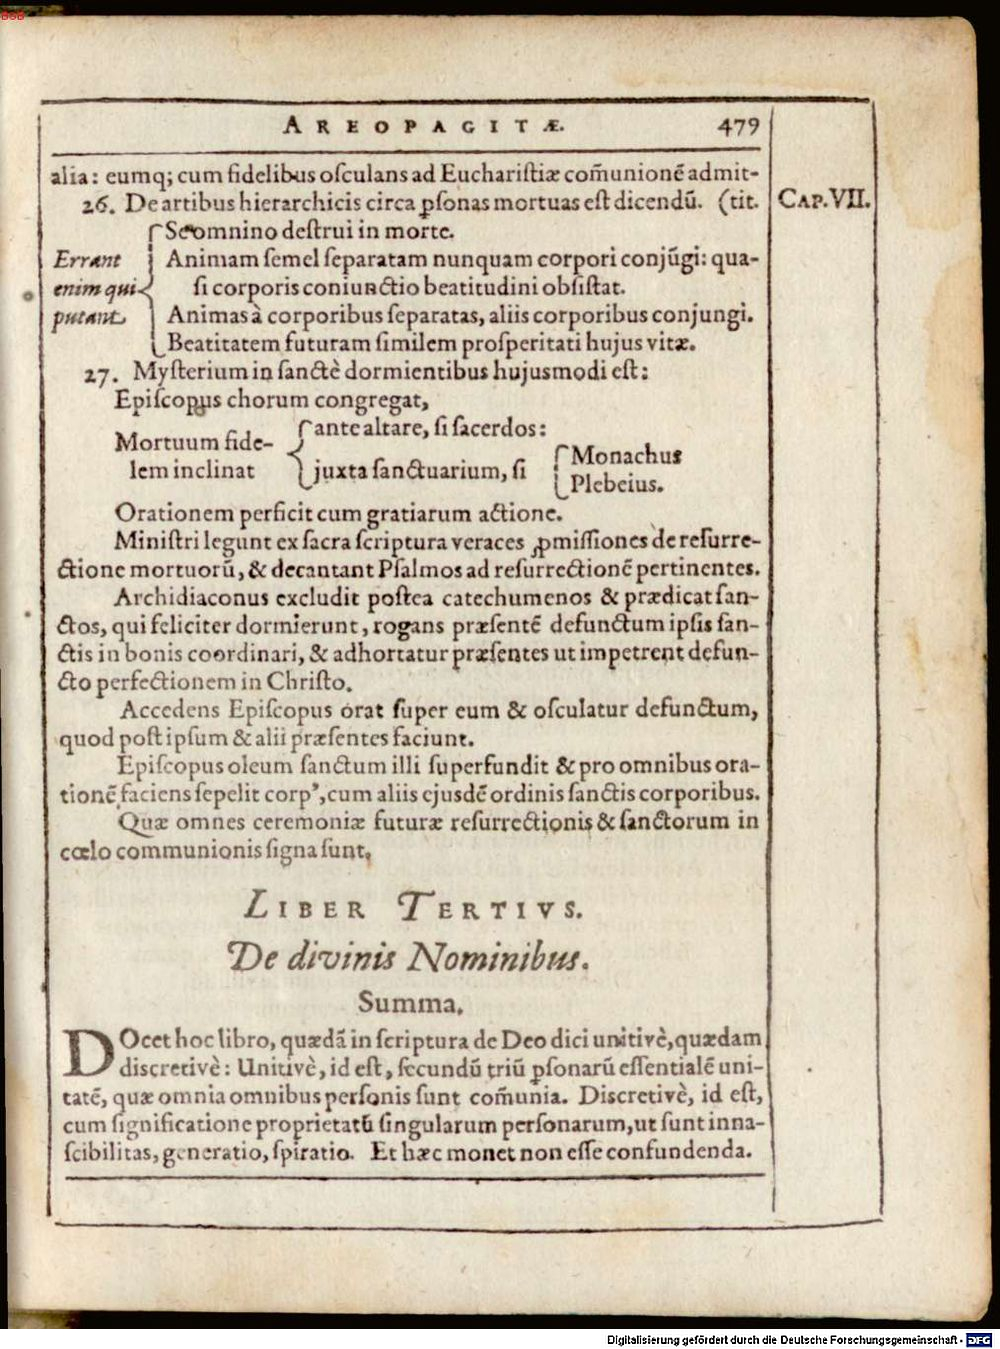 BSB
AREOPAGITÆ. 479
alia: eumq; cum fidelibus osculans ad Euchariſtiæ com̃unionẽ admit-
26. De artibus hierarchicis circa ꝑſonas mortuas eſt dicendũ. (tit.
CAP. VII.
Se omnino deſtrui in morte.
Errant
enim qui
putant
Animam ſemel ſeparatam nunquam corpori conjũgi: qua-
ſi corporis coniunctio beatitudini obſiſtat.
Animas à corporibus ſeparatas, aliis corporibus conjungi.
Beatitatem futuram ſimilem proſperitati hujus vitæ.
27. Myſterium in ſanctè dormientibus hujusmodi eſt:
Epiſcopus chorum congregat,
Mortuum fide-
lem inclinat
ante altare, ſi ſacerdos:
juxta ſanctuarium, ſi
Monachus
Plebeius.
Orationem perficit cum gratiarum actione.
Miniſtri legunt ex ſacra ſcriptura veraces ꝓmiſſiones de reſurre-
ctione mortuorũ, & decantant Pſalmos ad reſurrectionẽ pertinentes.
Archidiaconus excludit poſtea catechumenos & prædicat ſan-
ctos, qui feliciter dormierunt, rogans præſentẽ defunctum ipſis ſan-
ctis in bonis coordinari, & adhortatur præſentes ut impetrent defun-
cto perfectionem in Chriſto.
Accedens Epiſcopus orat ſuper eum & oſculatur defunctum,
quod poſt ipſum & alii præſentes faciunt.
Epiſcopus oleum ſanctum illi ſuperfundit & pro omnibus ora-
tionẽ faciens ſepelit corpꝰ, cum aliis ejusdẽ ordinis ſanctis corporibus.
Quæ omnes ceremoniæ futuræ reſurrectionis & ſanctorum in
cœlo communionis ſigna ſunt.
LIBER TERTIVS.
De divinis Nominibus.
Summa.
DOcet hoc libro, quædã in ſcriptura de Deo dici unitivè, quædam
discretivè: Unitivè, id eſt, ſecundũ triũ ꝑſonarũ eſſentialẽ uni-
tatẽ, quæ omnia omnibus perſonis ſunt com̃unia. Discretivè, id eſt,
cum ſignificatione proprietatũ ſingularum perſonarum, ut ſunt inna-
ſcibilitas, generatio, ſpiratio. Et hæc monet non eſſe confundenda.
Digitalisierung gefördert durch die Deutsche Forschungsgemeinschaft - DFG